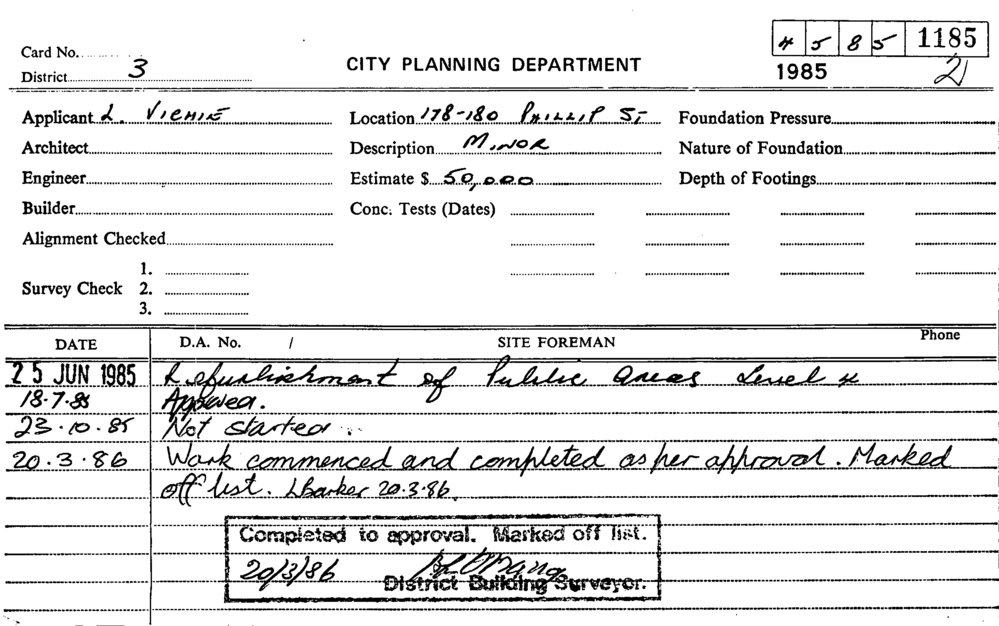 4 5 8 5 1185
Card No.
District 3
CITY PLANNING DEPARTMENT
1985
2
Applicant L. VICHIE
Location 178-180 PHILLIP ST
Foundation Pressure
Architect
Description MINOR
Nature of Foundation
Engineer
Estimate $ 50,000
Depth of Footings
Builder
Conc. Tests (Dates)
Alignment Checked
1.
Survey Check 2.
3.
DATE D.A. No. / SITE FOREMAN Phone
25 JUN 1985 Refurbishment of Public areas Level 4
18.7.85 Approved.
23.10.85 Not started.
20.3.86 Work commenced and completed as per approval. Marked
off list. LBarker 20.3.86.
Completed to approval. Marked off list.
20/3/86
District Building Surveyor.